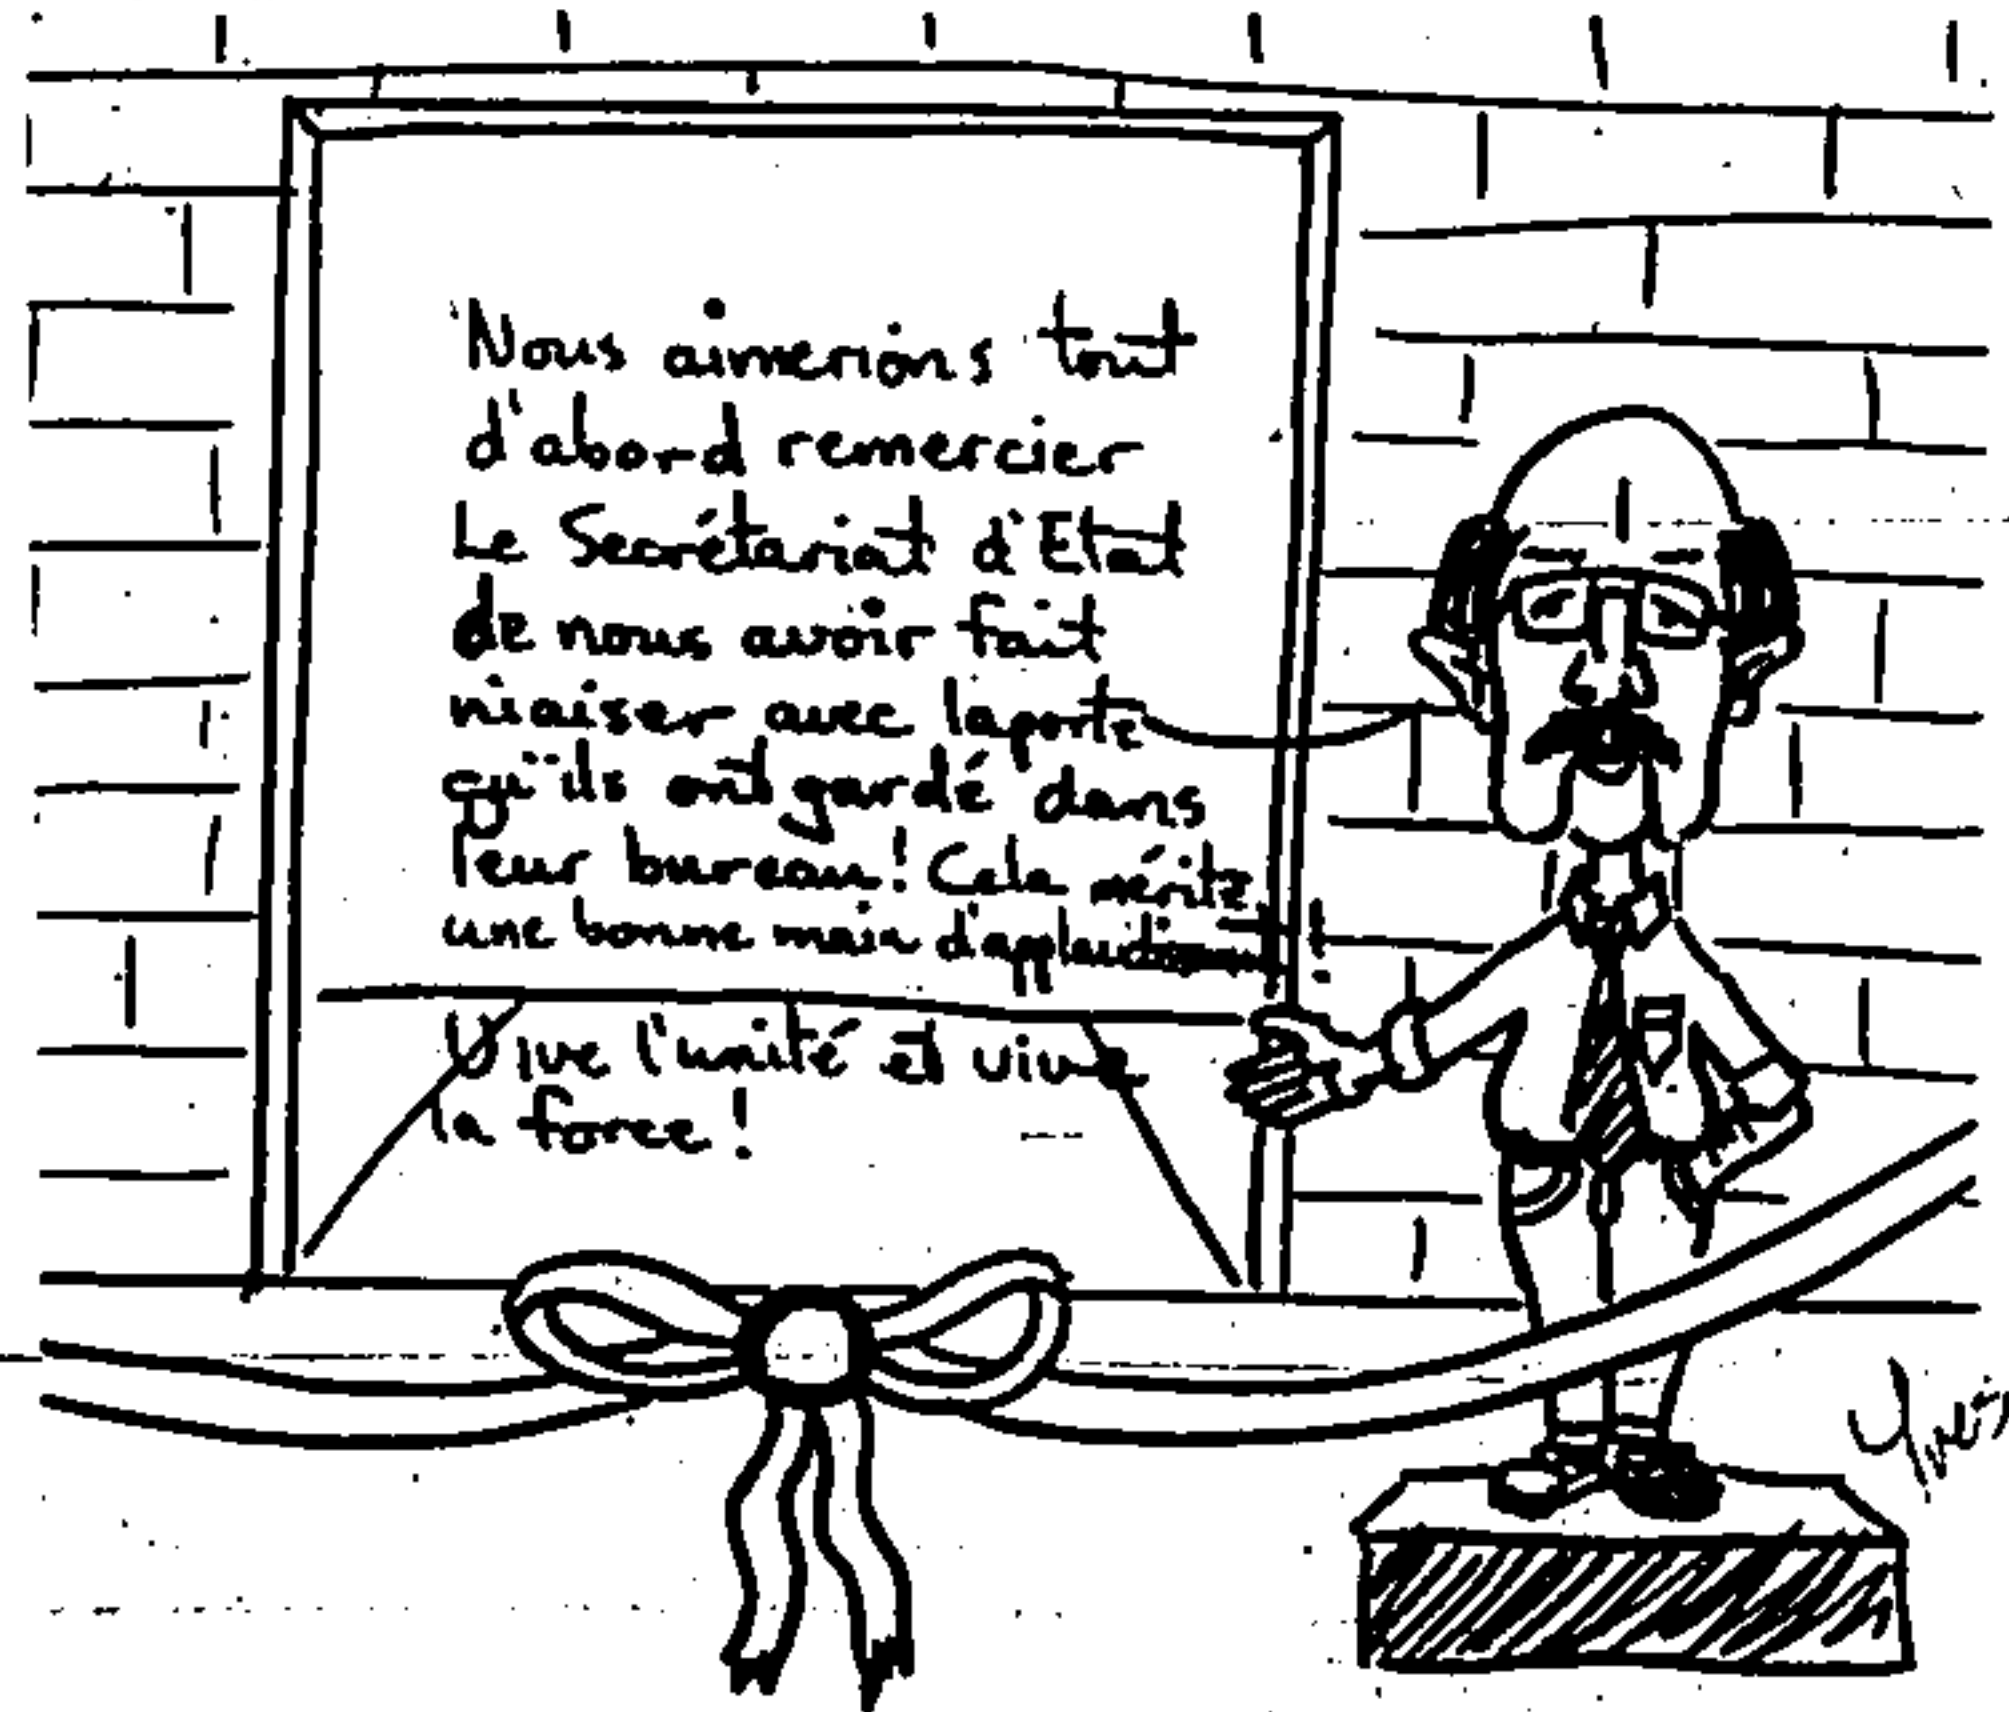 Nous aimerions tout
d'abord remercier
Le Secrétariat d'Etat
de nous avoir fait
niaiser avec la porte
qu'ils ont gardé dans
leur bureau! Cela mérite
une bonne main d'applaudissement!
Vive l'unité et vive
la force!
Yves